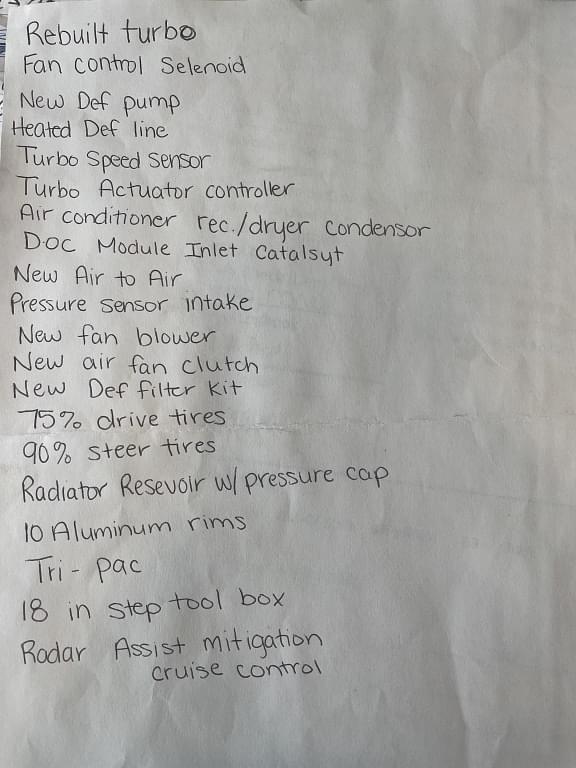 Rebuilt turbo
Fan control Selenoid
New Def pump
Heated Def line
Turbo Speed sensor
Turbo Actuator controller
Air conditioner rec./dryer condensor
D.O.C Module Inlet Catalsyt
New Air to Air
Pressure sensor intake
New fan blower
New air fan clutch
New Def filter kit
75% drive tires
90% steer tires
Radiator Resevoir w/ pressure cap
10 Aluminum rims
Tri-pac
18 in step tool box
Radar Assist mitigation
cruise control